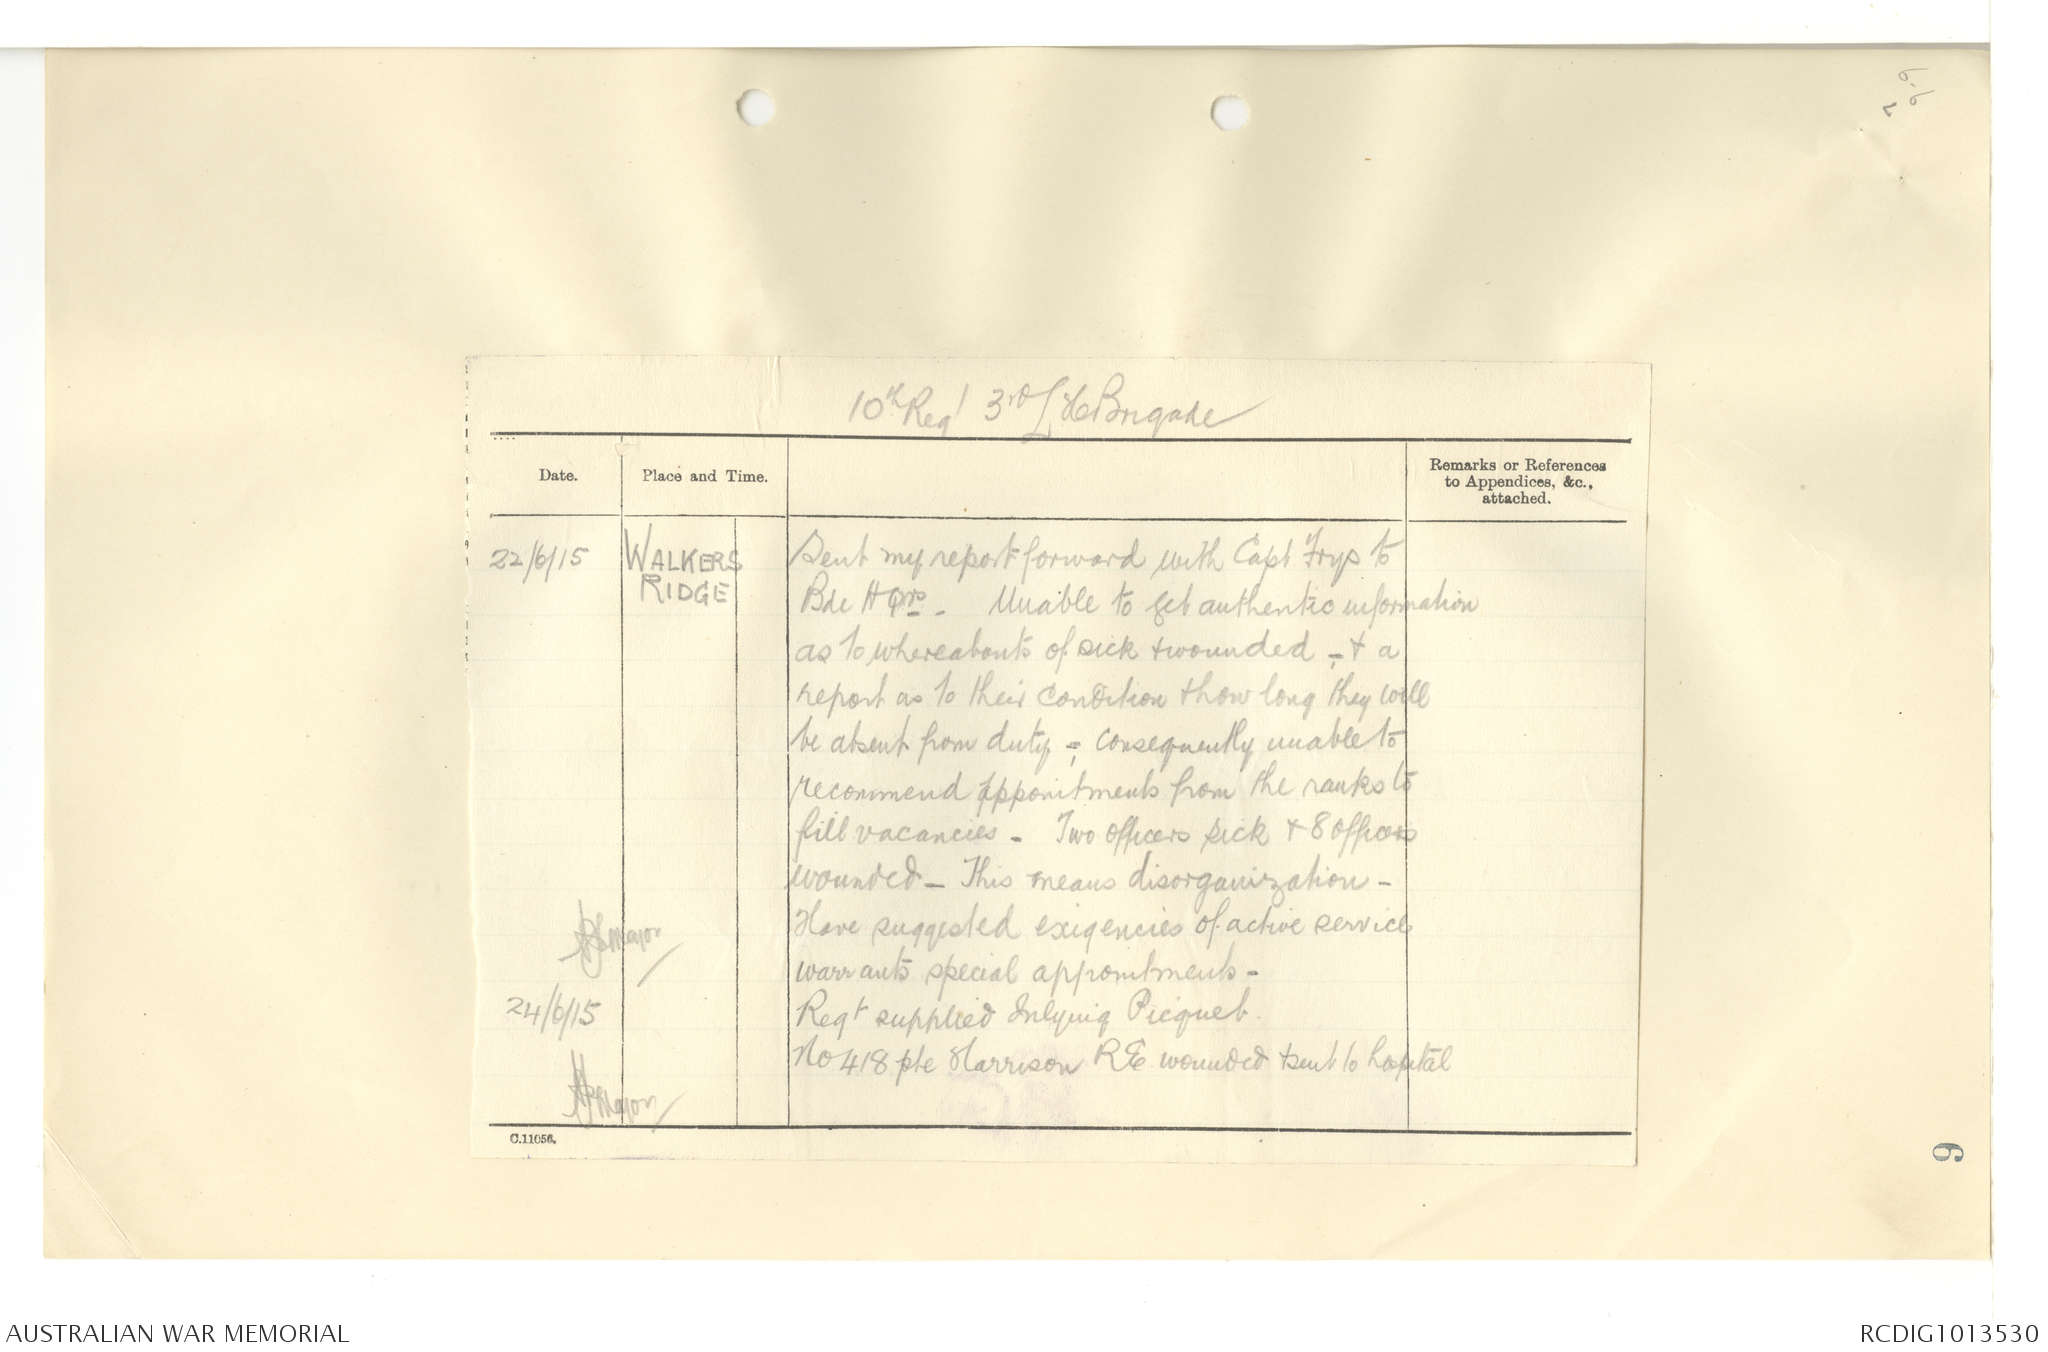 10th Regt 3rd L H Brigade
Date.
Place and Time.
Remarks or References
to Appendices, &c.,
attached.
22/6/15
WALKERS
RIDGE
Sent my report forward with Capt Frys to
Bde H Qrs -  Unable to get authentic information
as to whereabouts of sick + wounded - + a
report as to their condition + how long they will
be absent from duty - consequently unable to
recommend appointments from the ranks to
fill vacancies - Two officers sick + 8 officers
wounded - This means disorganization -
Have suggested exigencies of active service
warrants special appointments -
Major
24/6/15
Regt supplied Inlying Picquet.
No 418 pte Harrison R E wounded + sent to hospital
Major
C.11056.
9
AUSTRALIAN WAR MEMORIAL
RCDIG1013530